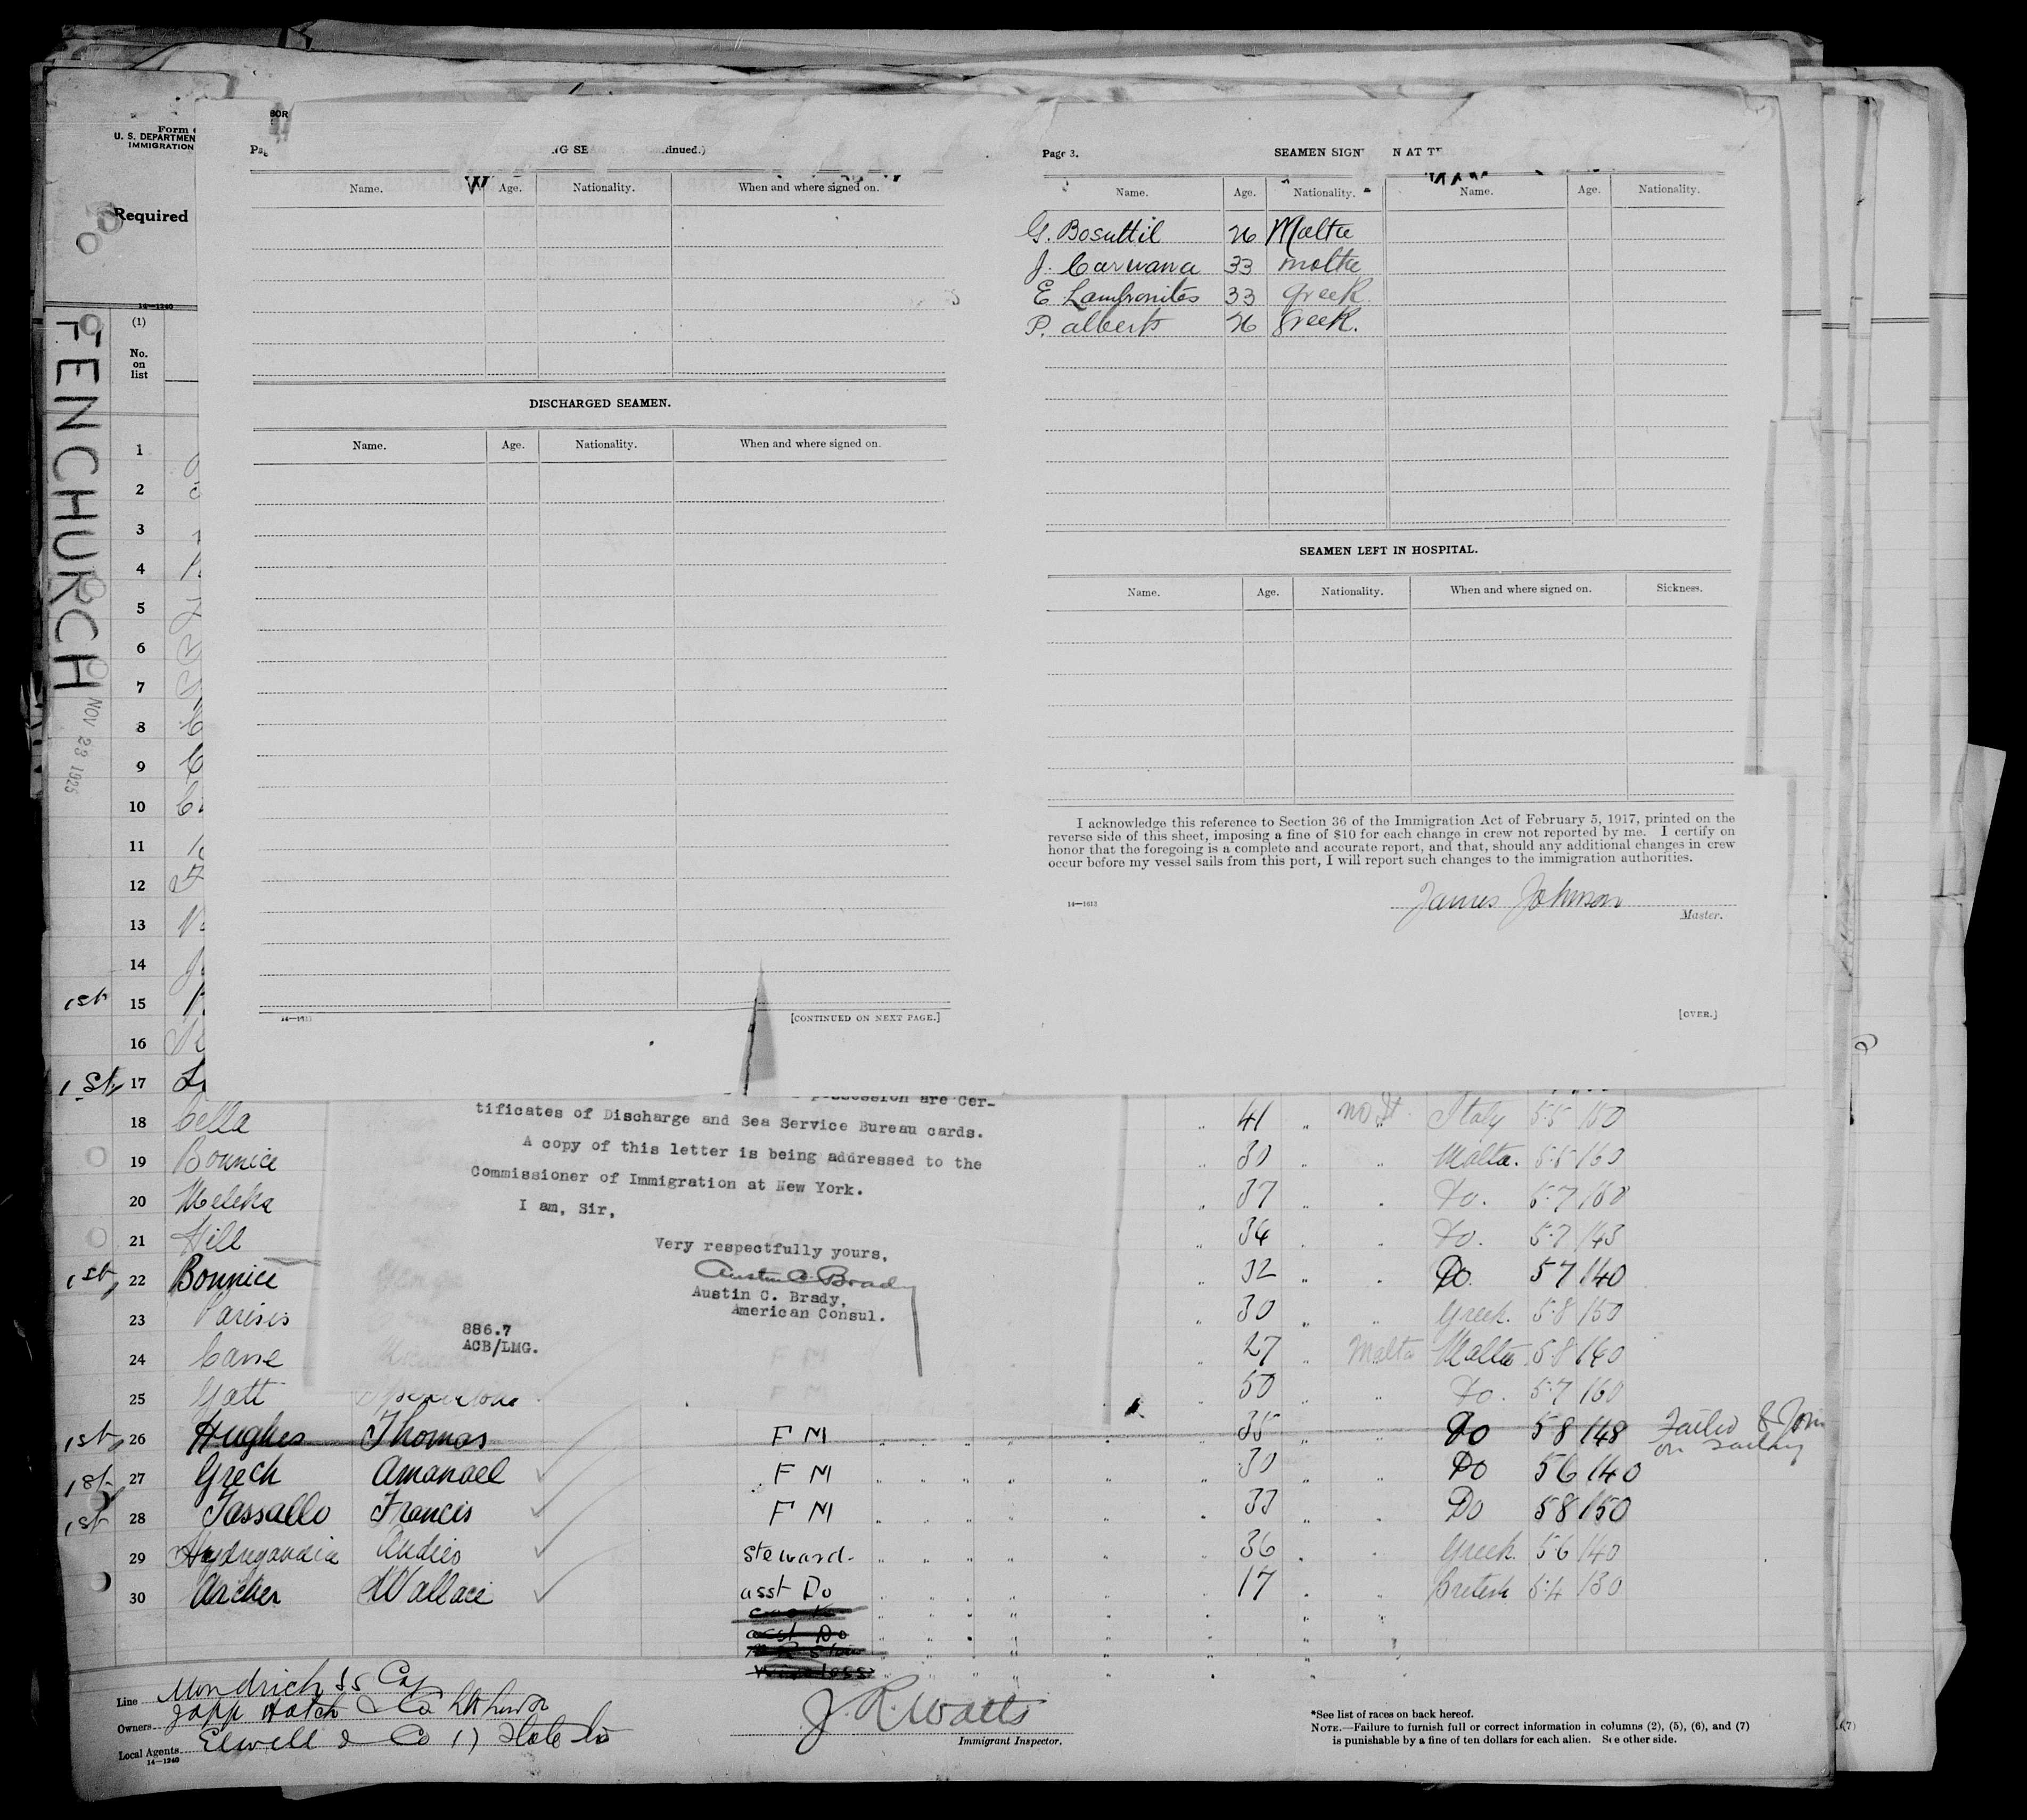 Form
U. S. DEPARTMEN
IMMIGRATION
Required
14—1240
(1)
No.
on
list
FENCHURCH
NOV 23 1925
BOR
NG SE
inued.)
Name. Age. Nationality. When and where signed on.
DISCHARGED SEAMEN.
Name. Age. Nationality. When and where signed on.
[CONTINUED ON NEXT PAGE.]
Page 3.
SEAMEN SIGN N AT T
Name. Age. Nationality. Name. Age. Nationality.
G. Bosuttil 26 Malta
J. Carwana 33 malta
E Lambronites 33 greek
P. alberts 26 greek.
SEAMEN LEFT IN HOSPITAL.
Name. Age. Nationality. When and where signed on. Sickness.
I acknowledge this reference to Section 36 of the Immigration Act of February 5, 1917, printed on the
reverse side of this sheet, imposing a fine of $10 for each change in crew not reported by me. I certify on
honor that the foregoing is a complete and accurate report, and that, should any additional changes in crew
occur before my vessel sails from this port, I will report such changes to the immigration authorities.
James Johnson
14—1613
Master.
[OVER.]
1
2
3
4
5
6
7
8
9
10
11
12
13
14
1st 15
16
1st 17
possession are Cer-
tificates of Discharge and Sea Service Bureau cards.
A copy of this letter is being addressed to the
Commissioner of Immigration at New York.
I am, Sir,
Very respectfully yours,
Austin C. Brady
Austin C. Brady,
American Consul.
886.7
ACB/LMG.
18 Cella 41 " no " Italy 5.5 150
19 Bonnice 30 " " Malta. 5.5 160
20 Meleka 37 " " Do. 5.7 160
21 Hill 34 " " Do. 5.7 145
1st 22 Bonnice 32 " " Do. 5 7 140
23 Parisis 30 " " Greek. 5.8 150
24 Cane 27 " Malta Malta 5.8 140
25 Gatt 50 " " Do. 5.7 160
1st 26 Hughes Thomas F M 35 " " Do 5 8 148 Failed to Join
on sailing
1st 27 Grech Amanael F M 30 " " Do 5 6 140
1st 28 Tassallo Francis F M 33 " " Do 5 8 150
29 Andies steward. 36 " " Greek. 5.6 140
30 Archer Wallace asst Do 17 " " British 5.4 130
asst Do
Line
Owners
Local Agents Elwell & Co 17 State St
14—1240
J. R. Watts
Immigrant Inspector.
*See list of races on back hereof.
NOTE.—Failure to furnish full or correct information in columns (2), (5), (6), and (7)
is punishable by a fine of ten dollars for each alien. See other side.
(7)